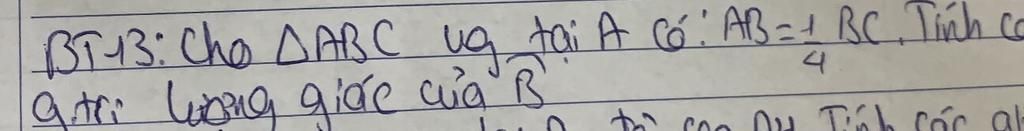 BT13: Cho △ABC vg tại A có: AB = 1/4 BC. Tính
g.trị lượng giác của B̂
Tính các